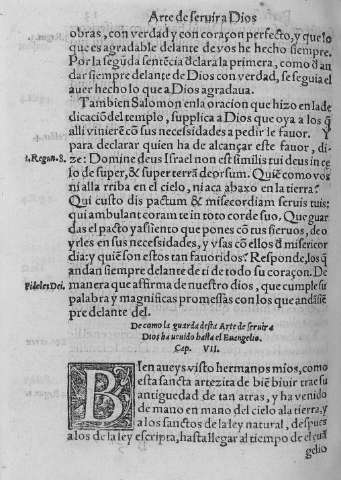 Arte de seruir a Dios
obras, con verdad y con coraçon perfecto, y que lo
que es agradable delante de vos he hecho siempre.
Por la segũda sentẽcia d̃clara la primera, como d̃an
dar siempre delante de Dios con verdad, se seguia el
auer hecho lo que a Dios agradaua.
Tambien Salomon en la oracion que hizo en la de
dicaciõ del templo, supplica a Dios que oya a los q̃
alli viniere cõ sus necessidades a pedir le fauor. Y
para declarar quien ha de alcançar este fauor, di-
3. Regan. 8.
ze: Domine deus Israel non est similis tui deus in cę
lo de super, & super terrã deorsum. Quiẽ como vos
ni alla rriba en el cielo, ni aca abaxo en la tierra?
Qui custo dis pactum & misecordiam seruis tuis:
qui ambulant coram te in toto corde suo. Que guar
das el pacto y assiento que pones cõ tus sieruos, de o
yrles en sus necessidades, y vsas cõ ellos d̃ misericor
dia: y quiẽ son estos tan fauoridos? Responde, los q̃
andan siempre delante de ti de todo su coraçon. De
Fideles Dei.
manera que affirma de nuestro dios, que cumple su
palabra y magnificas promessas con los que andã siẽ
pre delante del.
De como la guarda desta Arte de seruir a
Dios ha venido hasta el Euangelio.
Cap. VII.
BIen aueys visto hermanos mios, como
esta sancta artezita de biẽ biuir trae su
antiguedad de tan atras, y ha venido
de mano en mano del cielo a la tierra, y
a los sanctos de la ley natural, despues
a los de la ley escripta, hasta llegar al tiempo de el euã
gelio